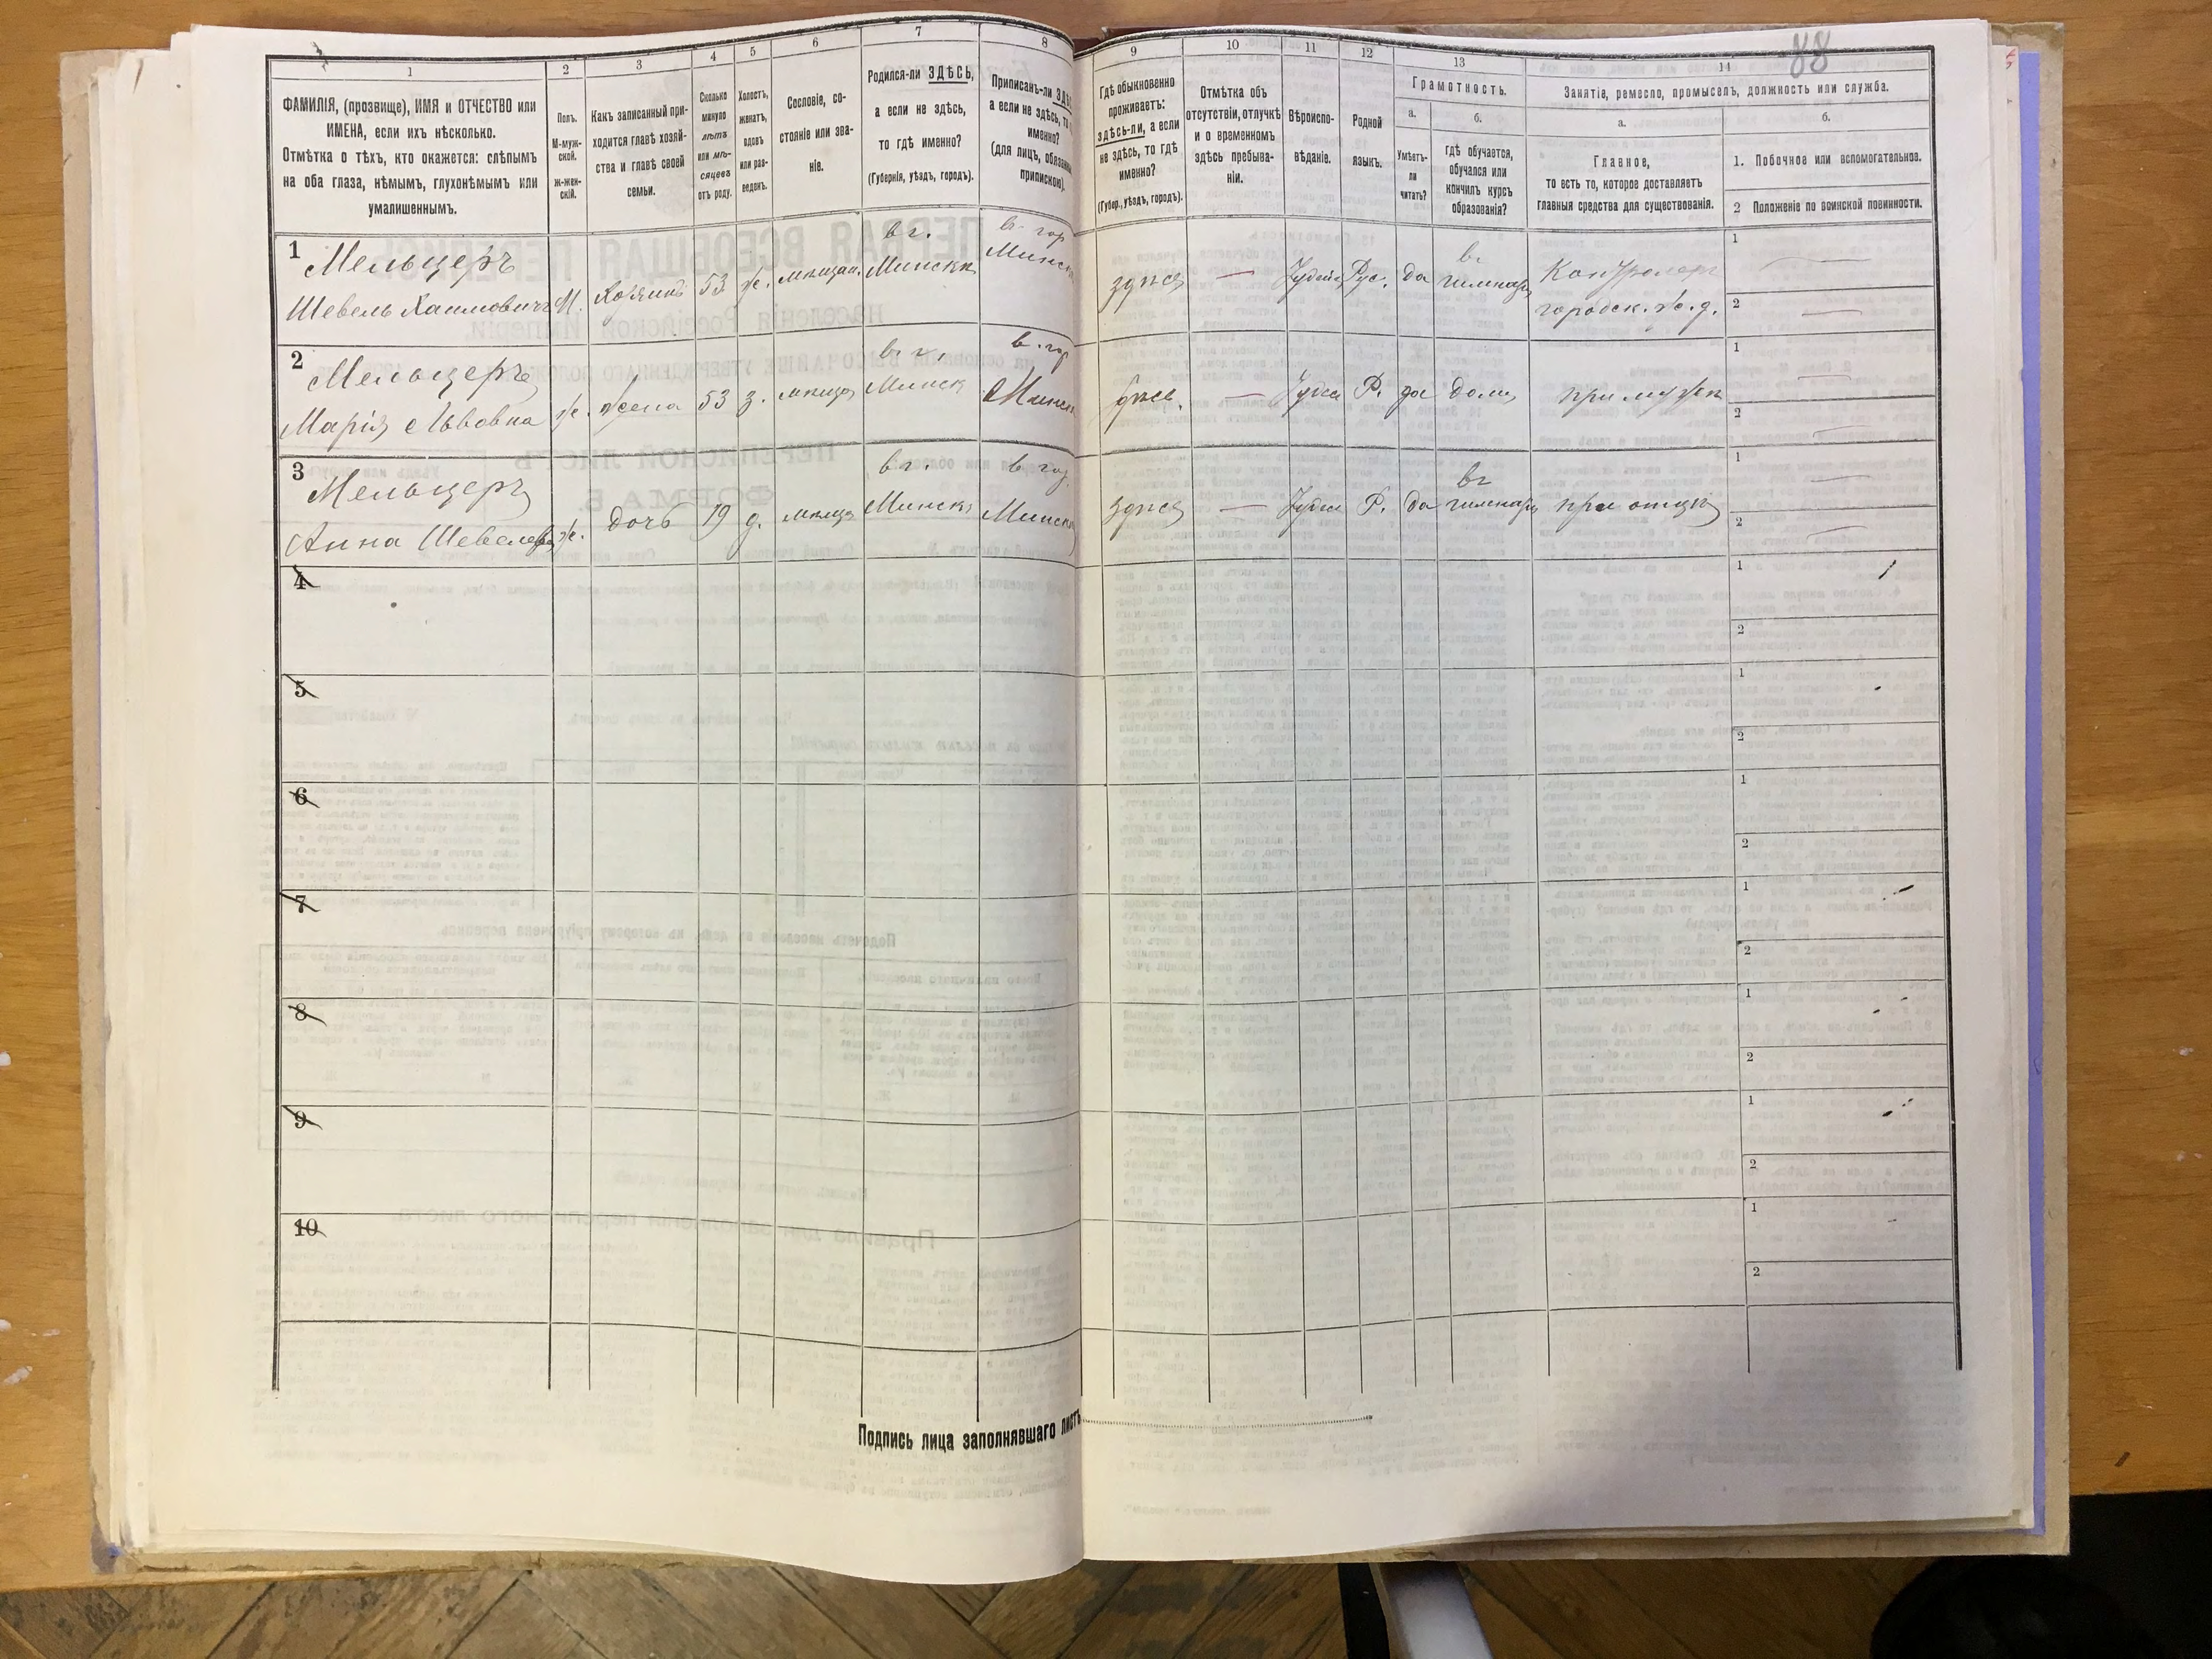 88
1
ФАМИЛІЯ, (прозвище), ИМЯ и ОТЧЕСТВО или
ИМЕНА, если ихъ нѣсколько.
Отмѣтка о тѣхъ, кто окажется: слѣпымъ
на оба глаза, нѣмымъ, глухонѣмымъ или
умалишеннымъ.
2
Полъ.
М-муж-
ской.
Ж-жен-
скій.
3
Какъ записанный при-
ходится главѣ хозяй-
ства и главѣ своей
семьи.
4
Сколько
минуло
лѣтъ
или мѣ-
сяцевъ
отъ роду.
5
Холостъ,
женатъ,
вдовъ
или раз-
веденъ.
6
Сословіе, со-
стояніе или зва-
ніе.
7
Родился-ли ЗДѢСЬ,
а если не здѣсь,
то гдѣ именно?
(Губернія, уѣздъ, городъ).
8
Приписанъ-ли
а если не здѣсь,
именно?
(для лицъ,
припискою).
9
Гдѣ обыкновенно
проживаетъ:
здѣсь-ли, а если
не здѣсь, то гдѣ
именно?
(Губер., уѣздъ, городъ).
10
Отмѣтка объ
отсутствіи, отлучкѣ
и о временномъ
здѣсь пребыва-
ніи.
11
Вѣроиспо-
вѣданіе.
12
Родной
языкъ.
13
Грамотность.
а.
Умѣетъ-
ли
читать?
б.
гдѣ обучается,
обучался или
кончилъ курсъ
образованія?
14
Занятіе, ремесло, промыселъ, должность или служба.
а.
Главное,
то есть то, которое доставляетъ
главныя средства для существованія.
б.
1. Побочное или вспомогательное.
2 Положеніе по воинской повинности.
1
Мельцеръ
Шевель Хаимовичъ
М.
Хозяинъ
53
ж.
мѣщан.
въ г.
Минскѣ
въ гор
Минск
здѣсь
—
Іудейс
Рус.
да
въ
гимназ
Контролеръ
городск. ж. д.
1 —
2 —
2
Мельцеръ
Марія Львовна
ж.
жена
53
з.
мѣщан
въ г.
Минскѣ
в. гор
Минск
здѣсь.
—
Іудей
Р.
да
дома
при мужѣ
1 —
2 —
3
Мельцеръ
Анна Шевелева
ж.
дочь
19
д.
мѣщан
въ г.
Минскѣ
в гор
Минск
здѣсь
—
Іудей
Р.
да
въ
гимназ
при отцѣ
1 —
2 —
4
1
2
5
1
2
6
1
2
7
1
2
8
1
2
9
1
2
10
1
2
Подпись лица заполнявшаго листъ